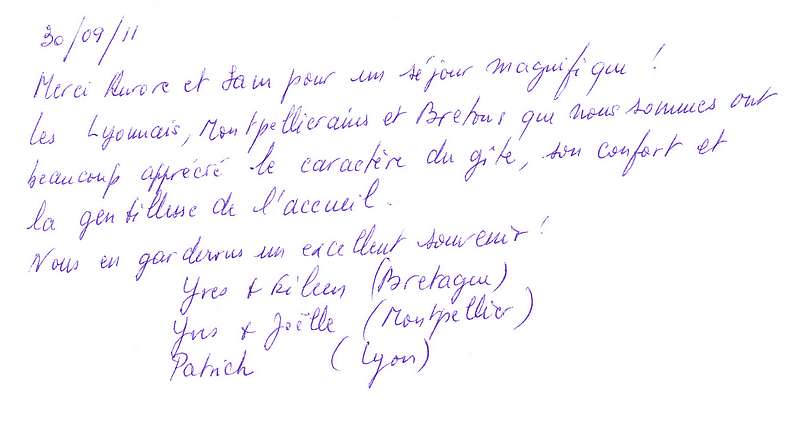 30/09/11
Merci Aurore et Sam pour un séjour magnifique !
les Lyonnais, Montpellierains et Bretons que nous sommes ont
beaucoup apprécié le caractère du gîte, son confort et
la gentillesse de l'accueil.
Nous en garderons un excellent souvenir !
Yves + Eileen (Bretagne)
Yves + Joëlle (Montpellier)
Patrick (Lyon)